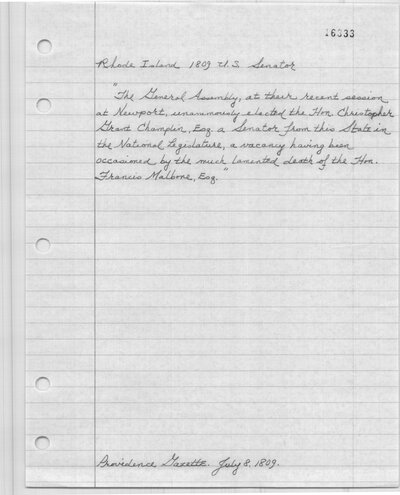 16333
Rhode Island 1809 U.S. Senator
"The General Assembly, at their recent session
at Newport, unanimously elected the Hon. Christopher
Grant Champlin, Esq. a Senator from this State in
the National Legislature, a vacancy having been
occasioned by the much lamented death of the Hon.
Francis Malbone, Esq."
Providence Gazette. July 8, 1809.